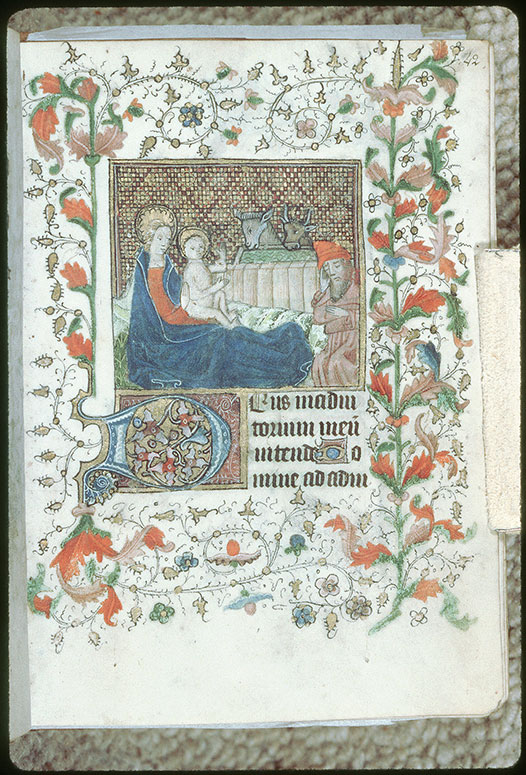 Deus in adiu
torium meu
intende Do
mine ad adiu